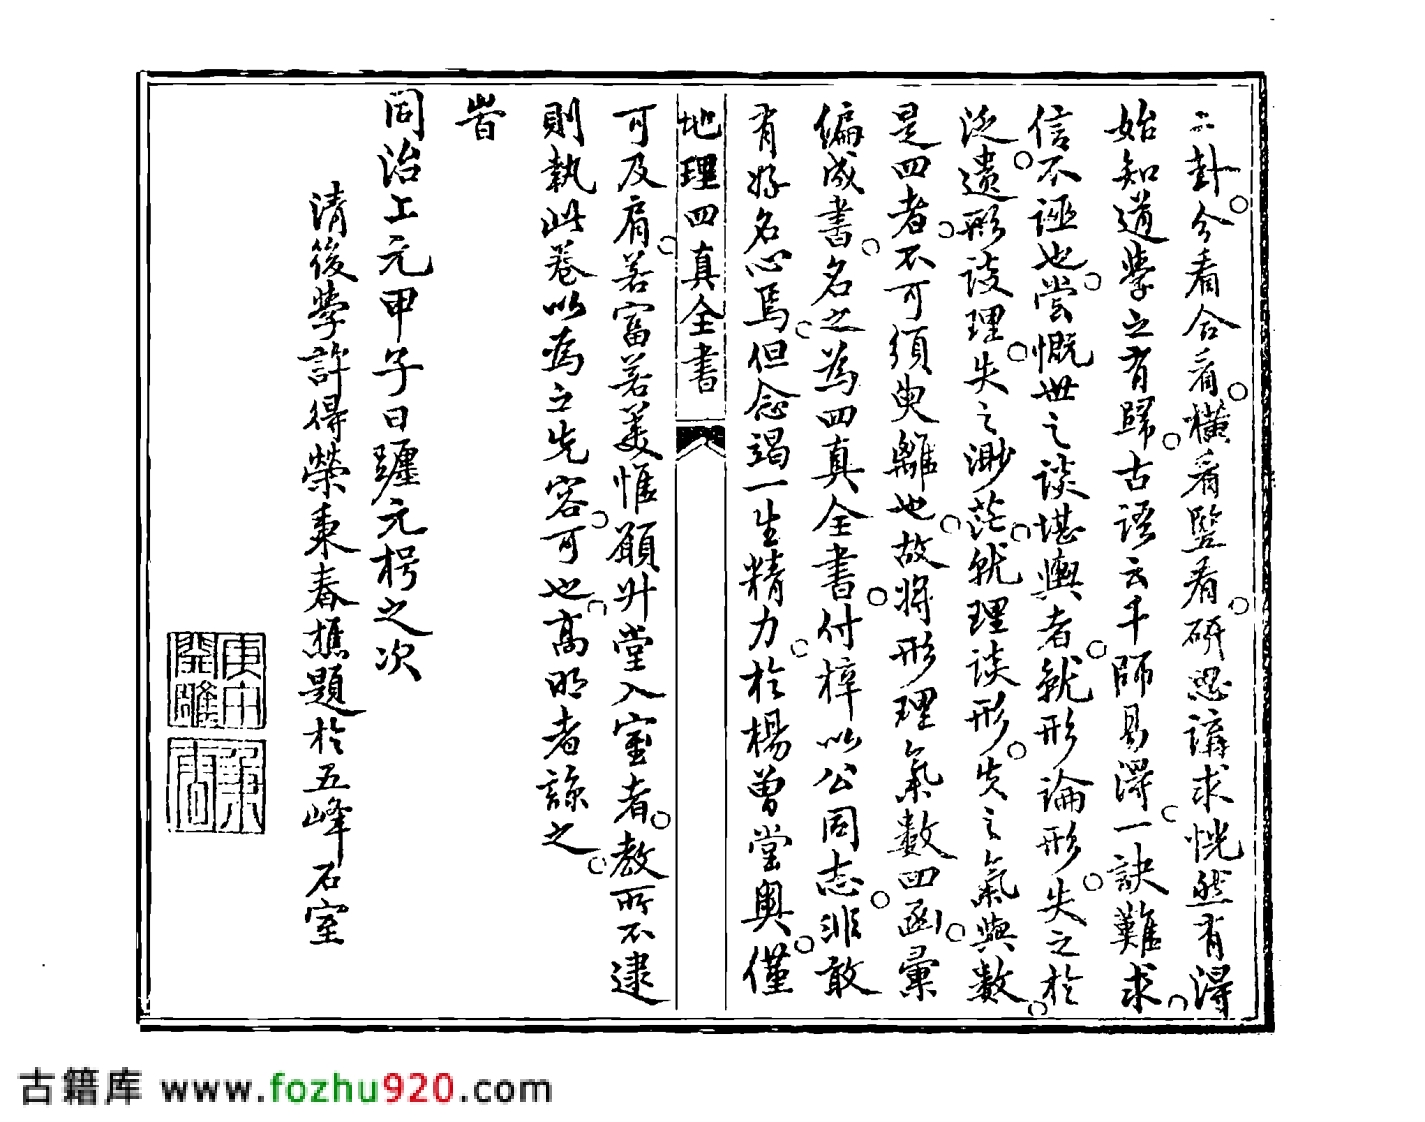 二卦分看合看橫看豎看研思講求恍然有得
始知道學之有歸古語云千師易得一訣難求
信不誣也嘗慨世之談堪輿者就形論形失之於
泛遺形談理失之渺茫就理談形失之氣與數
是四者不可須臾離也故將形理氣數四函彙
編成書名之為四真全書付梓以公同志非敢
有好名心焉但念竭一生精力於楊曾堂奧僅
地理四真全書
可及肩若富若美惟願升堂入室者教所不逮
則執此卷以為之先容可也高明者諒之
旹
同治上元甲子日躔元枵之次
清後學許得榮東春樵題於五峰石室
古籍库 www.fozhu920.com